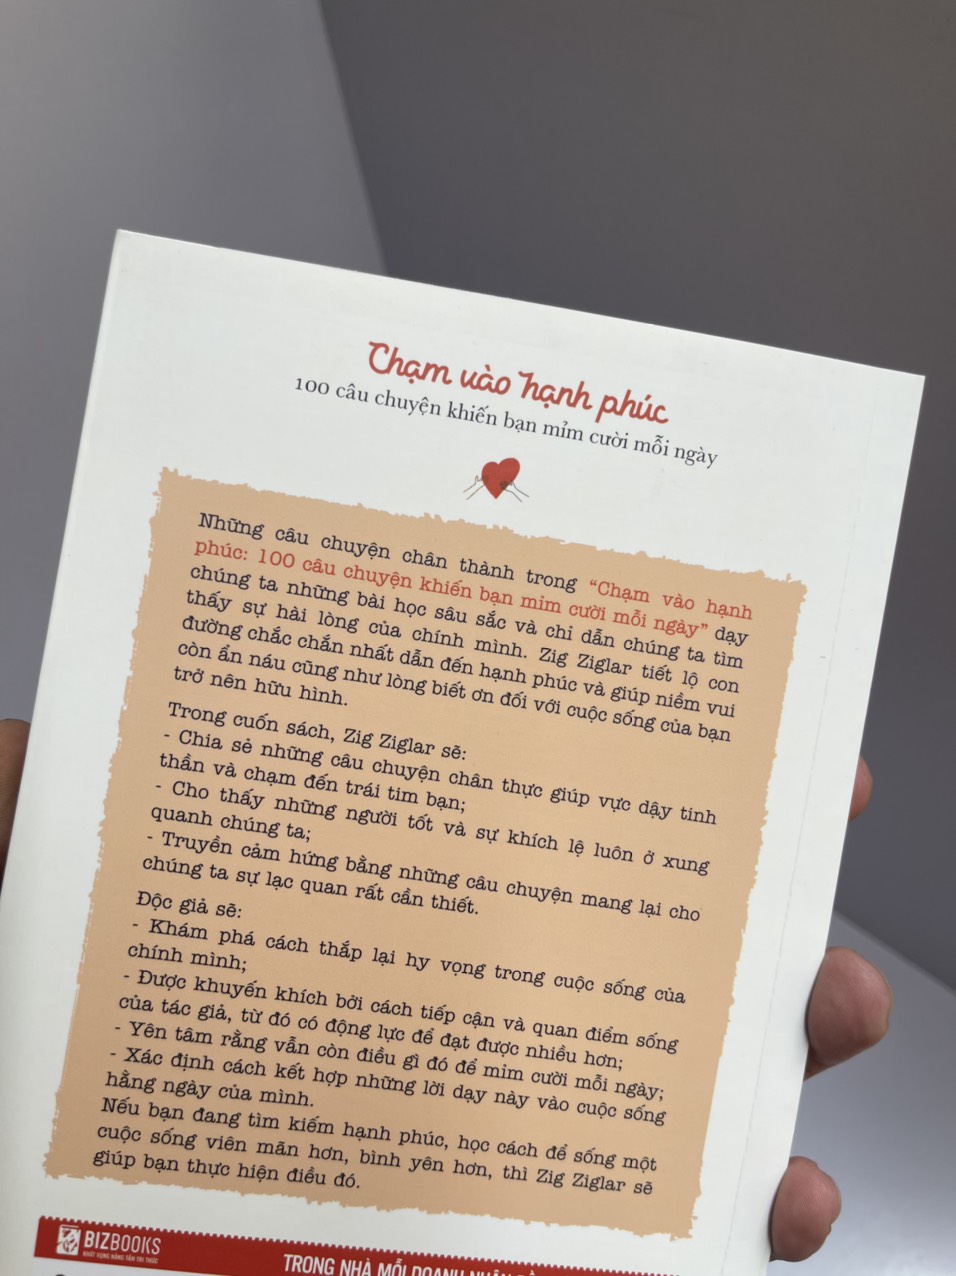 Chạm vào hạnh phúc
100 câu chuyện khiến bạn mỉm cười mỗi ngày
Những câu chuyện chân thành trong “Chạm vào hạnh
phúc: 100 câu chuyện khiến bạn mỉm cười mỗi ngày” dạy
chúng ta những bài học sâu sắc và chỉ dẫn chúng ta tìm
thấy sự hài lòng của chính mình. Zig Ziglar tiết lộ con
đường chắc chắn nhất dẫn đến hạnh phúc và giúp niềm vui
còn ẩn náu cũng như lòng biết ơn đối với cuộc sống của bạn
trở nên hữu hình.
Trong cuốn sách, Zig Ziglar sẽ:
- Chia sẻ những câu chuyện chân thực giúp vực dậy tinh
thần và chạm đến trái tim bạn;
- Cho thấy những người tốt và sự khích lệ luôn ở xung
quanh chúng ta;
- Truyền cảm hứng bằng những câu chuyện mang lại cho
chúng ta sự lạc quan rất cần thiết.
Độc giả sẽ:
- Khám phá cách thắp lại hy vọng trong cuộc sống của
chính mình;
- Được khuyến khích bởi cách tiếp cận và quan điểm sống
của tác giả, từ đó có động lực để đạt được nhiều hơn;
- Yên tâm rằng vẫn còn điều gì đó để mỉm cười mỗi ngày;
- Xác định cách kết hợp những lời dạy này vào cuộc sống
hằng ngày của mình.
Nếu bạn đang tìm kiếm hạnh phúc, học cách để sống một
cuộc sống viên mãn hơn, bình yên hơn, thì Zig Ziglar sẽ
giúp bạn thực hiện điều đó.
BIZBOOKS
KHÁT VỌNG NÂNG TẦM TRI THỨC
TRONG NHÀ MỖI DOANH NHÂN